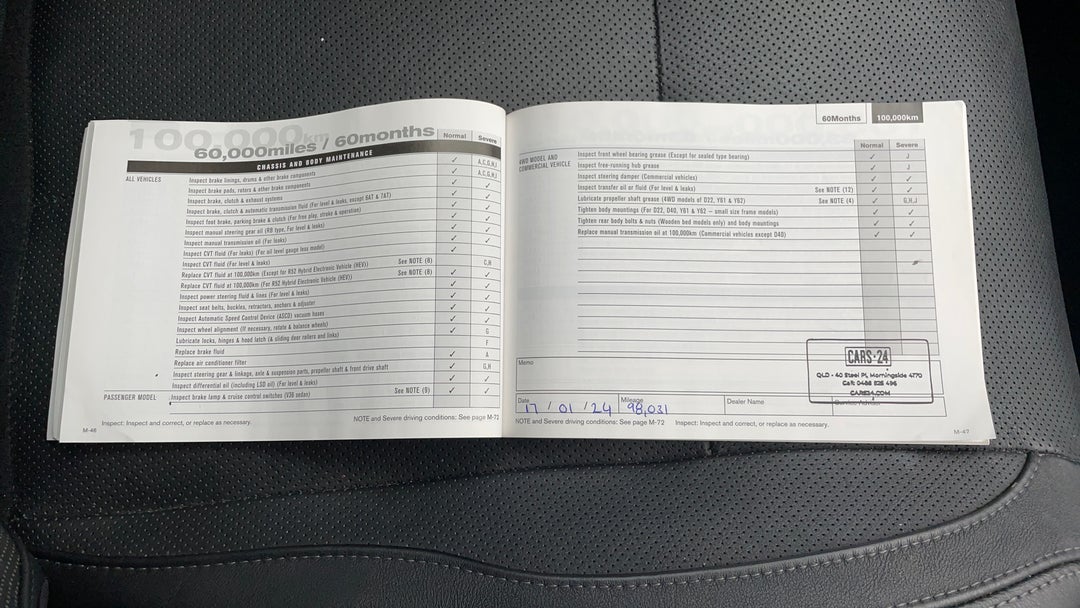 100,000km
60,000miles / 60months
Normal Severe
CHASSIS AND BODY MAINTENANCE
ALL VEHICLES
Inspect brake linings, drums & other brake components ✓ A,C,G,H,J
Inspect brake pads, rotors & other brake components ✓ A,C,G,H,J
Inspect brake, clutch & exhaust systems ✓ ✓
Inspect brake, clutch & automatic transmission fluid (For level & leaks, except 6AT & 7AT) ✓ ✓
Inspect foot brake, parking brake & clutch (For free play, stroke & operation) ✓ ✓
Inspect manual steering gear oil (RB type, For level & leaks) ✓ ✓
Inspect manual transmission oil (For leaks) ✓ ✓
Inspect CVT fluid (For leaks) (For oil level gauge less model) ✓ ✓
Inspect CVT fluid (For level & leaks) ✓ ✓
Replace CVT fluid at 100,000km (Except for R52 Hybrid Electronic Vehicle (HEV)) See NOTE (8) C,H
Replace CVT fluid at 100,000km (For R52 Hybrid Electronic Vehicle (HEV)) See NOTE (8) ✓ ✓
Inspect power steering fluid & lines (For level & leaks) ✓ ✓
Inspect seat belts, buckles, retractors, anchors & adjuster ✓ ✓
Inspect Automatic Speed Control Device (ASCD) vacuum hoses ✓ ✓
Inspect wheel alignment (If necessary, rotate & balance wheels) ✓ ✓
Lubricate locks, hinges & hood latch (& sliding door rollers and links) ✓ G
Replace brake fluid F
Replace air conditioner filter ✓ A
Inspect steering gear & linkage, axle & suspension parts, propeller shaft & front drive shaft ✓ G,H
Inspect differential oil (including LSD oil) (For level & leaks) ✓ ✓
PASSENGER MODEL Inspect brake lamp & cruise control switches (V36 sedan) See NOTE (9) ✓ ✓
Inspect: Inspect and correct, or replace as necessary.
NOTE and Severe driving conditions: See page M-72
M-46
60Months 100,000km
Normal Severe
4WD MODEL AND
COMMERCIAL VEHICLE
Inspect front wheel bearing grease (Except for sealed type bearing) ✓ J
Inspect free-running hub grease ✓ J
Inspect steering damper (Commercial vehicles) ✓ ✓
Inspect transfer oil or fluid (For level & leaks) See NOTE (12) ✓ ✓
Lubricate propeller shaft grease (4WD models of D22, Y61 & Y62) See NOTE (4) ✓ G,H,J
Tighten body mountings (For D22, D40, Y61 & Y62 – small size frame models) ✓ ✓
Tighten rear body bolts & nuts (Wooden bed models only) and body mountings ✓ ✓
Replace manual transmission oil at 100,000km (Commercial vehicles except D40) ✓ ✓
Memo
CARS·24
QLD - 40 Steel Pl, Morningside 4170
Call: 0488 825 496
CARS24.COM
Date 17 / 01 / 24 Mileage 98,031 Dealer Name
NOTE and Severe driving conditions: See page M-72 Inspect: Inspect and correct, or replace as necessary.
M-47